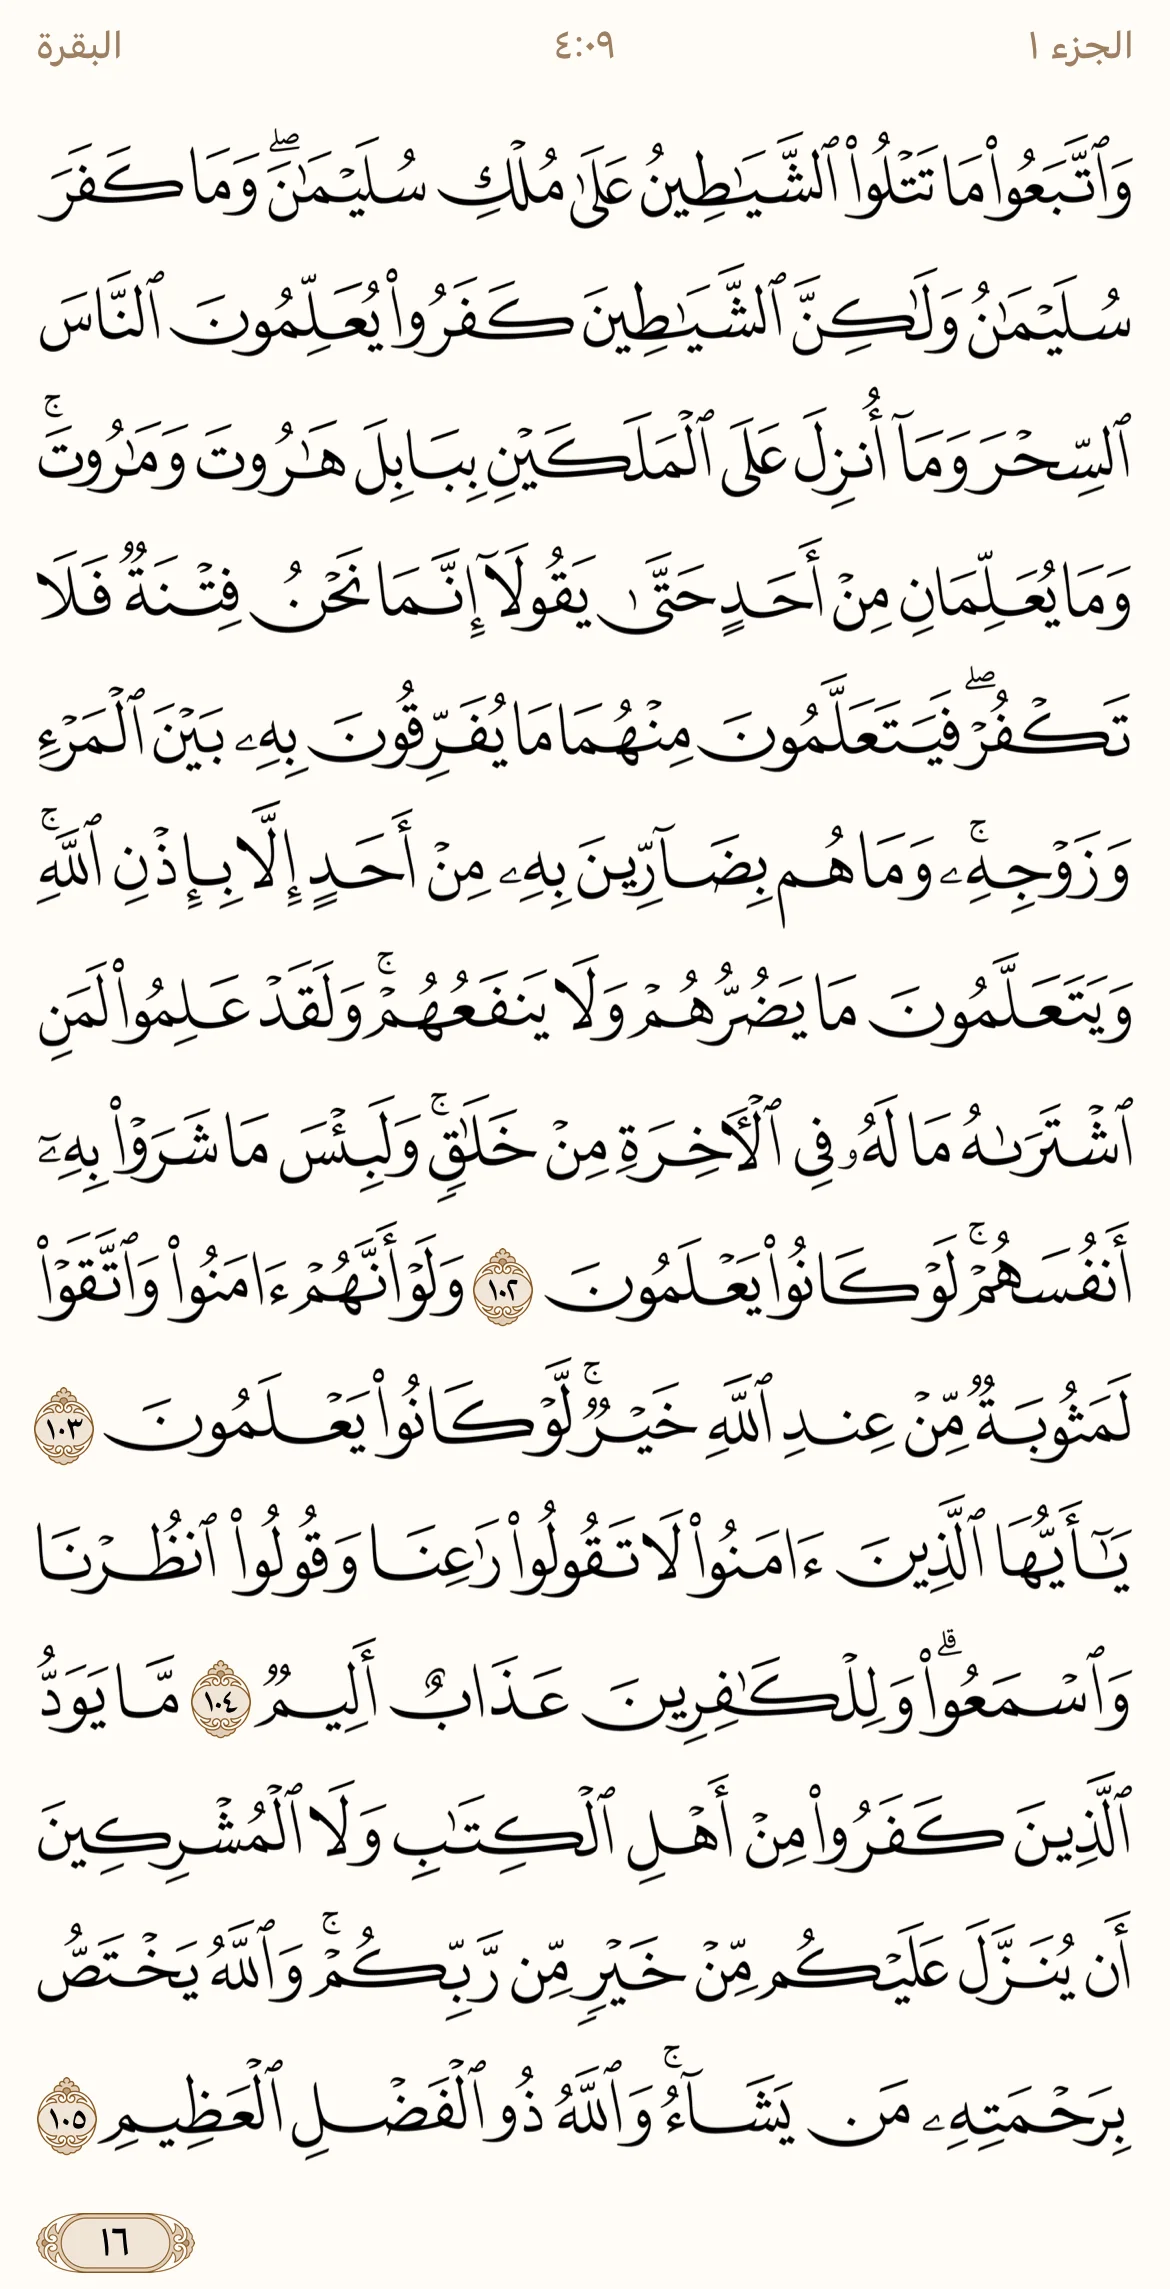 الجزء ١
٤:٠٩
البقرة
وَٱتَّبَعُوا۟ مَا تَتْلُوا۟ ٱلشَّيَـٰطِينُ عَلَىٰ مُلْكِ سُلَيْمَـٰنَ ۖ وَمَا كَفَرَ
سُلَيْمَـٰنُ وَلَـٰكِنَّ ٱلشَّيَـٰطِينَ كَفَرُوا۟ يُعَلِّمُونَ ٱلنَّاسَ
ٱلسِّحْرَ وَمَآ أُنزِلَ عَلَى ٱلْمَلَكَيْنِ بِبَابِلَ هَـٰرُوتَ وَمَـٰرُوتَ ۚ
وَمَا يُعَلِّمَانِ مِنْ أَحَدٍ حَتَّىٰ يَقُولَآ إِنَّمَا نَحْنُ فِتْنَةٌ فَلَا
تَكْفُرْ ۖ فَيَتَعَلَّمُونَ مِنْهُمَا مَا يُفَرِّقُونَ بِهِۦ بَيْنَ ٱلْمَرْءِ
وَزَوْجِهِۦ ۚ وَمَا هُم بِضَآرِّينَ بِهِۦ مِنْ أَحَدٍ إِلَّا بِإِذْنِ ٱللَّهِ ۚ
وَيَتَعَلَّمُونَ مَا يَضُرُّهُمْ وَلَا يَنفَعُهُمْ ۚ وَلَقَدْ عَلِمُوا۟ لَمَنِ
ٱشْتَرَىٰهُ مَا لَهُۥ فِى ٱلْـَٔاخِرَةِ مِنْ خَلَـٰقٍ ۚ وَلَبِئْسَ مَا شَرَوْا۟ بِهِۦٓ
أَنفُسَهُمْ ۚ لَوْ كَانُوا۟ يَعْلَمُونَ ١٠٢ وَلَوْ أَنَّهُمْ ءَامَنُوا۟ وَٱتَّقَوْا۟
لَمَثُوبَةٌ مِّنْ عِندِ ٱللَّهِ خَيْرٌ ۚ لَّوْ كَانُوا۟ يَعْلَمُونَ ١٠٣
يَـٰٓأَيُّهَا ٱلَّذِينَ ءَامَنُوا۟ لَا تَقُولُوا۟ رَٰعِنَا وَقُولُوا۟ ٱنظُرْنَا
وَٱسْمَعُوا۟ ۗ وَلِلْكَـٰفِرِينَ عَذَابٌ أَلِيمٌ ١٠٤ مَّا يَوَدُّ
ٱلَّذِينَ كَفَرُوا۟ مِنْ أَهْلِ ٱلْكِتَـٰبِ وَلَا ٱلْمُشْرِكِينَ
أَن يُنَزَّلَ عَلَيْكُم مِّنْ خَيْرٍ مِّن رَّبِّكُمْ ۚ وَٱللَّهُ يَخْتَصُّ
بِرَحْمَتِهِۦ مَن يَشَآءُ ۚ وَٱللَّهُ ذُو ٱلْفَضْلِ ٱلْعَظِيمِ ١٠٥
١٦